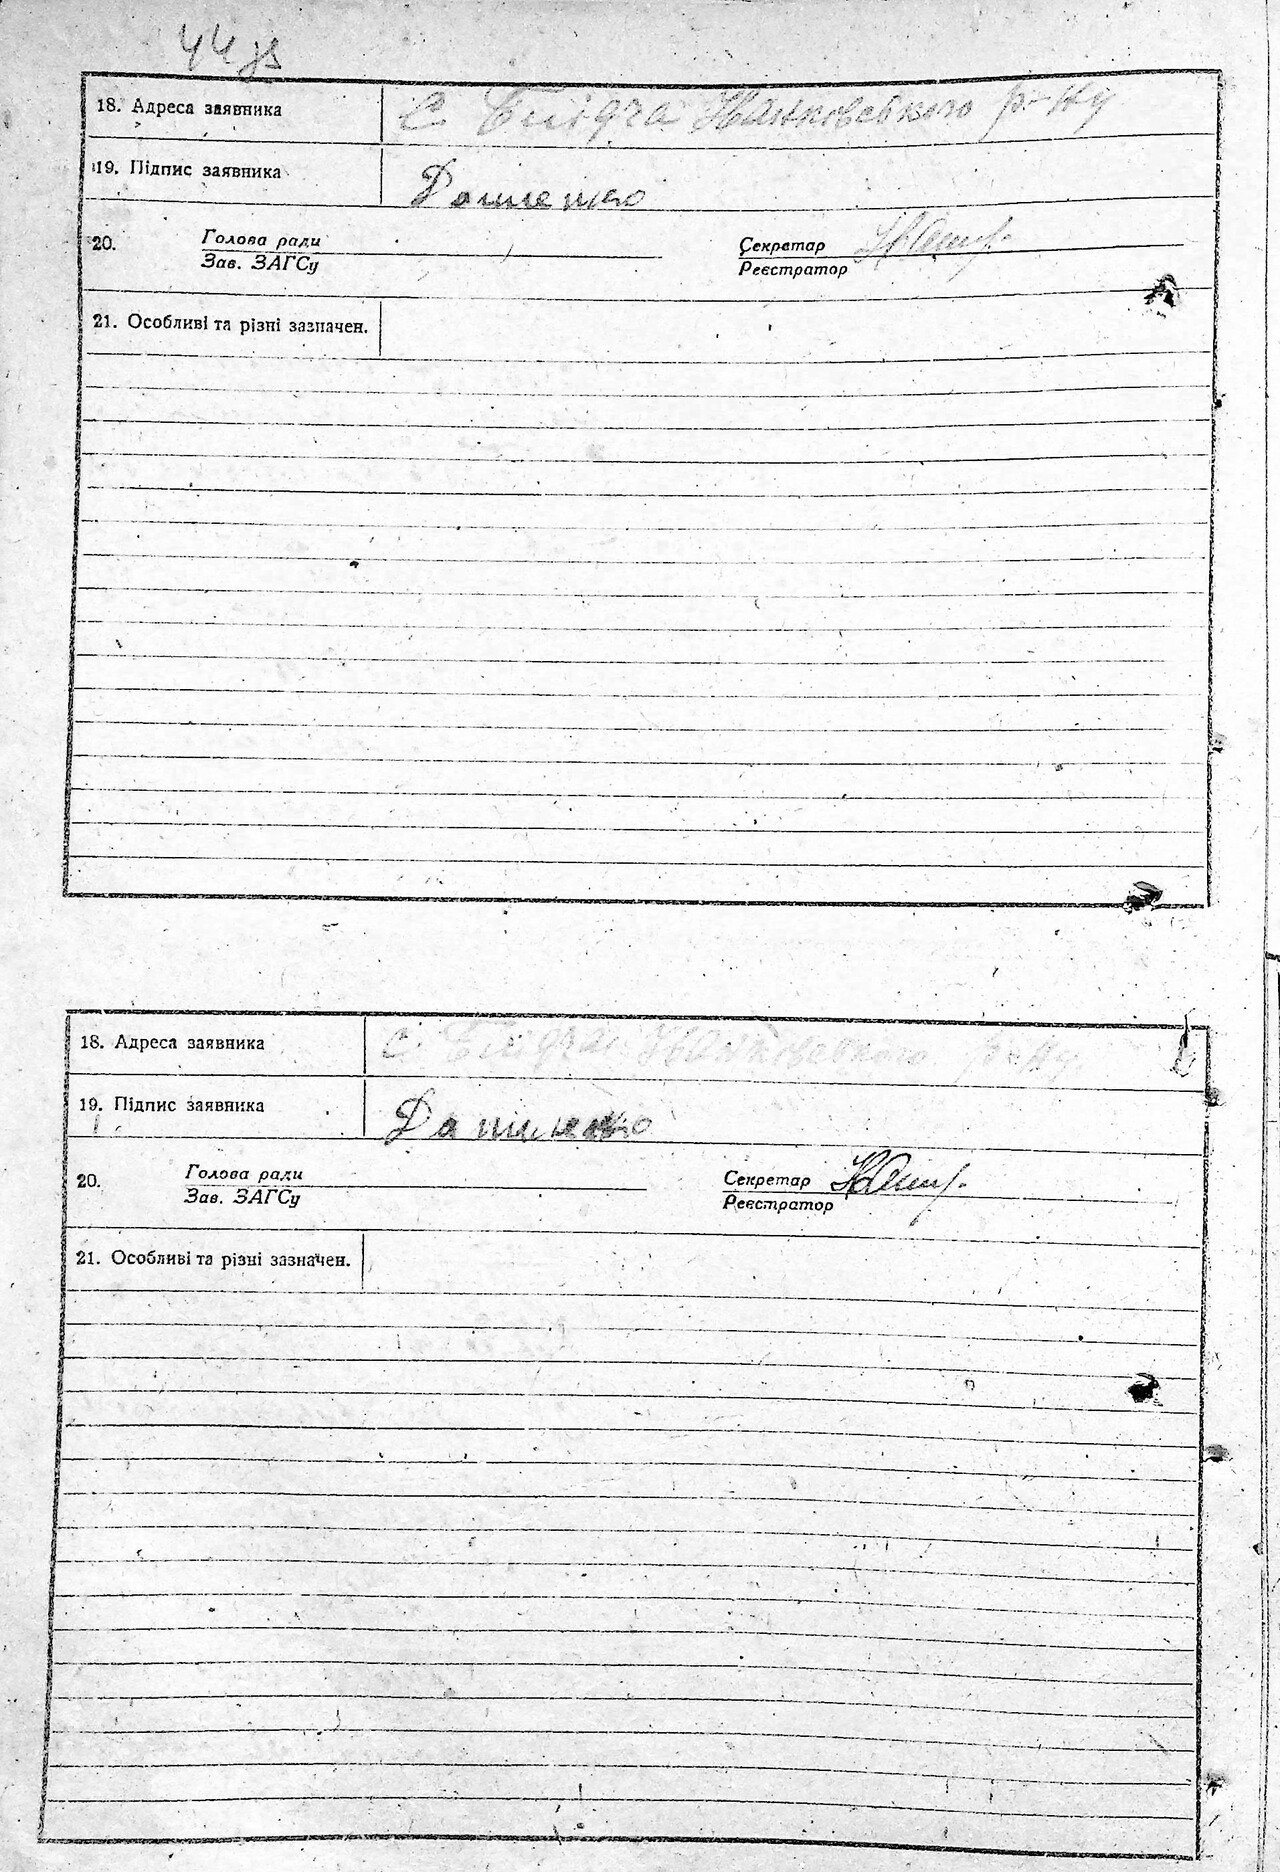 44 зв
18. Адреса заявника с Блідча Іванковського р-ну
19. Підпис заявника Даниленко
20. Голова ради Секретар
Зав. ЗАГСу Реєстратор
21. Особливі та різні зазначен.
18. Адреса заявника с Блідча Іванковського р-ну
19. Підпис заявника Даниленко
20. Голова ради Секретар
Зав. ЗАГСу Реєстратор
21. Особливі та різні зазначен.